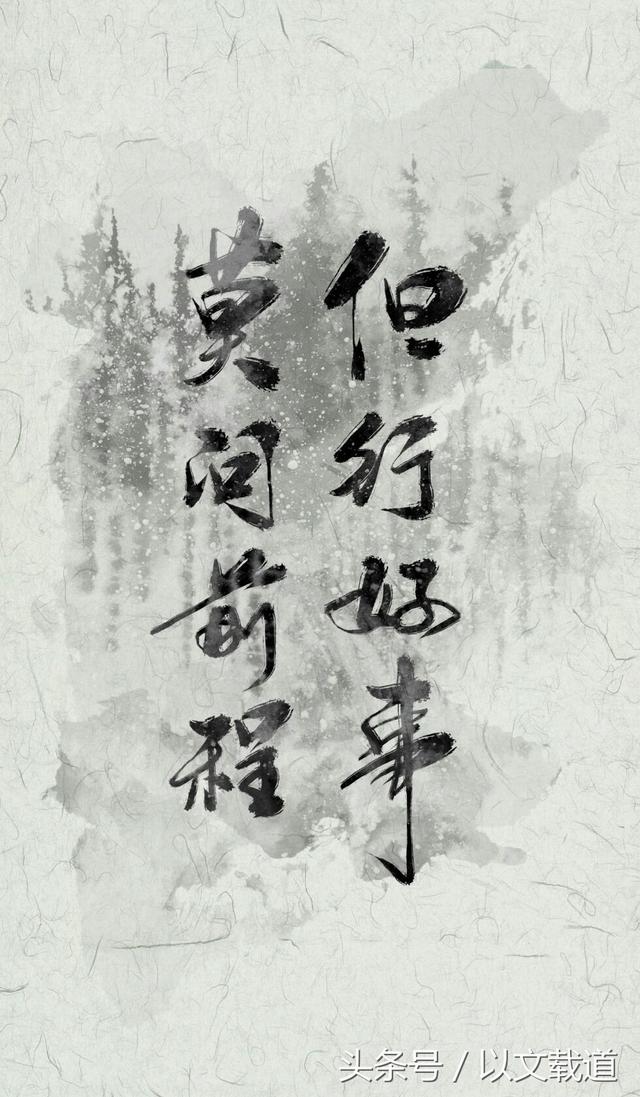 但行好事
莫问前程
头条号 / 以文载道